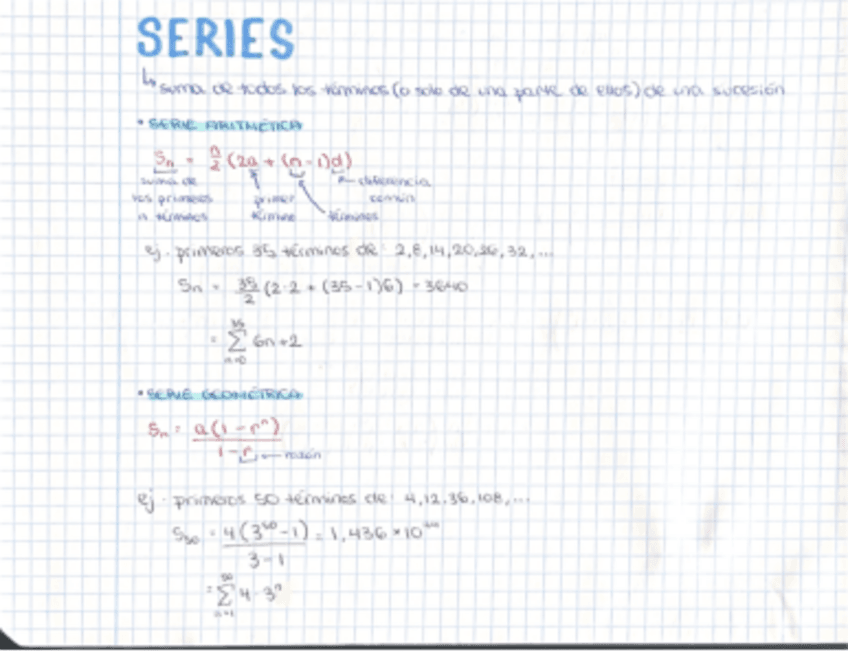 SERIES
↳ suma de todos los términos (o solo de una parte de ellos) de una sucesión
• SERIE ARITMÉTICA
Sn = n/2 (2a + (n-1)d)
suma de los primeros n términos
primer término
términos
diferencia común
ej. primeros 35 términos de: 2,8,14,20,26,32,...
Sn = 35/2 (2·2 + (35-1)6) = 3640
= Σ 6n+2
n=0
• SERIE GEOMÉTRICA
Sn = a(1-rⁿ)
1-r ← razón
ej. primeros 50 términos de: 4,12,36,108,...
S50 = 4(3⁵⁰-1) = 1,436 × 10
3-1
= Σ 4·3ⁿ